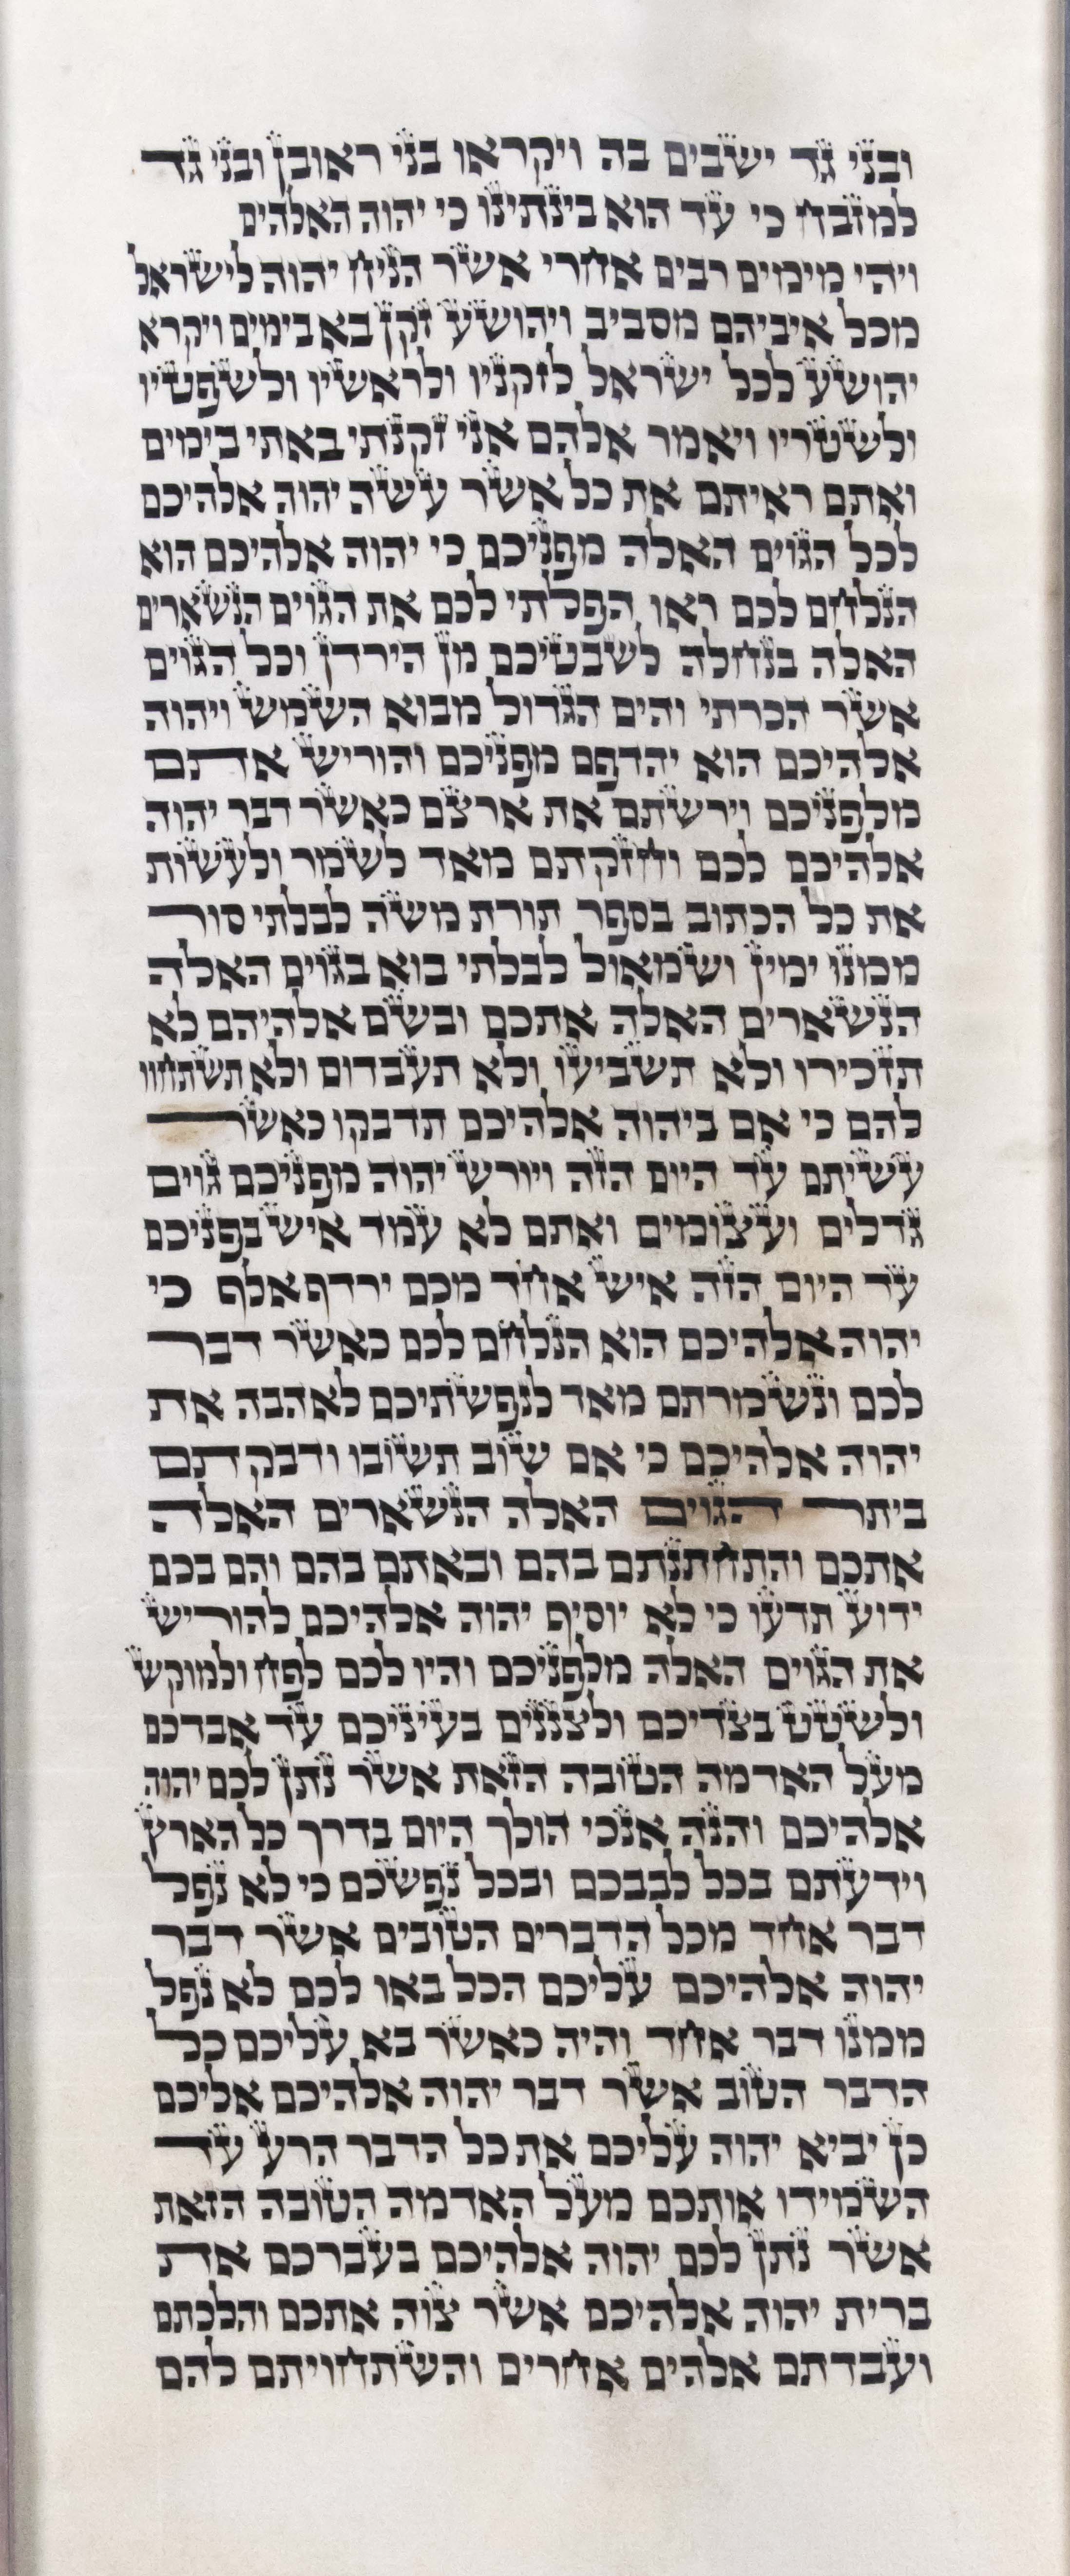 ובני גד ישבים בה ויקראו בני ראובן ובני גד
למזבח כי עד הוא בינתינו כי יהוה האלהים
ויהי מימים רבים אחרי אשר הניח יהוה לישראל
מכל איביהם מסביב ויהושע זקן בא בימים ויקרא
יהושע לכל ישראל לזקניו ולראשיו ולשפטיו
ולשטריו ויאמר אלהם אני זקנתי באתי בימים
ואתם ראיתם את כל אשר עשה יהוה אלהיכם
לכל הגוים האלה מפניכם כי יהוה אלהיכם הוא
הנלחם לכם ראו הפלתי לכם את הגוים הנשארים
האלה בנחלה לשבטיכם מן הירדן וכל הגוים
אשר הכרתי והים הגדול מבוא השמש ויהוה
אלהיכם הוא יהדפם מפניכם והוריש אתם
מלפניכם וירשתם את ארצם כאשר דבר יהוה
אלהיכם לכם וחזקתם מאד לשמר ולעשות
את כל הכתוב בספר תורת משה לבלתי סור
ממנו ימין ושמאול לבלתי בוא בגוים האלה
הנשארים האלה אתכם ובשם אלהיהם לא
תזכירו ולא תשביעו ולא תעבדום ולא תשתחוו
להם כי אם ביהוה אלהיכם תדבקו כאשר
עשיתם עד היום הזה ויורש יהוה מפניכם גוים
גדלים ועצומים ואתם לא עמד איש בפניכם
עד היום הזה איש אחד מכם ירדף אלף כי
יהוה אלהיכם הוא הנלחם לכם כאשר דבר
לכם ונשמרתם מאד לנפשתיכם לאהבה את
יהוה אלהיכם כי אם שוב תשובו ודבקתם
ביתר הגוים האלה הנשארים האלה
אתכם והתחתנתם בהם ובאתם בהם והם בכם
ידוע תדעו כי לא יוסיף יהוה אלהיכם להוריש
את הגוים האלה מלפניכם והיו לכם לפח ולמוקש
ולשטט בצדיכם ולצננים בעיניכם עד אבדכם
מעל האדמה הטובה הזאת אשר נתן לכם יהוה
אלהיכם והנה אנכי הולך היום בדרך כל הארץ
וידעתם בכל לבבכם ובכל נפשכם כי לא נפל
דבר אחד מכל הדברים הטובים אשר דבר
יהוה אלהיכם עליכם הכל באו לכם לא נפל
ממנו דבר אחד והיה כאשר בא עליכם כל
הדבר הטוב אשר דבר יהוה אלהיכם אליכם
כן יביא יהוה עליכם את כל הדבר הרע עד
השמידו אותכם מעל האדמה הטובה הזאת
אשר נתן לכם יהוה אלהיכם בעברכם את
ברית יהוה אלהיכם אשר צוה אתכם והלכתם
ועבדתם אלהים אחרים והשתחויתם להם